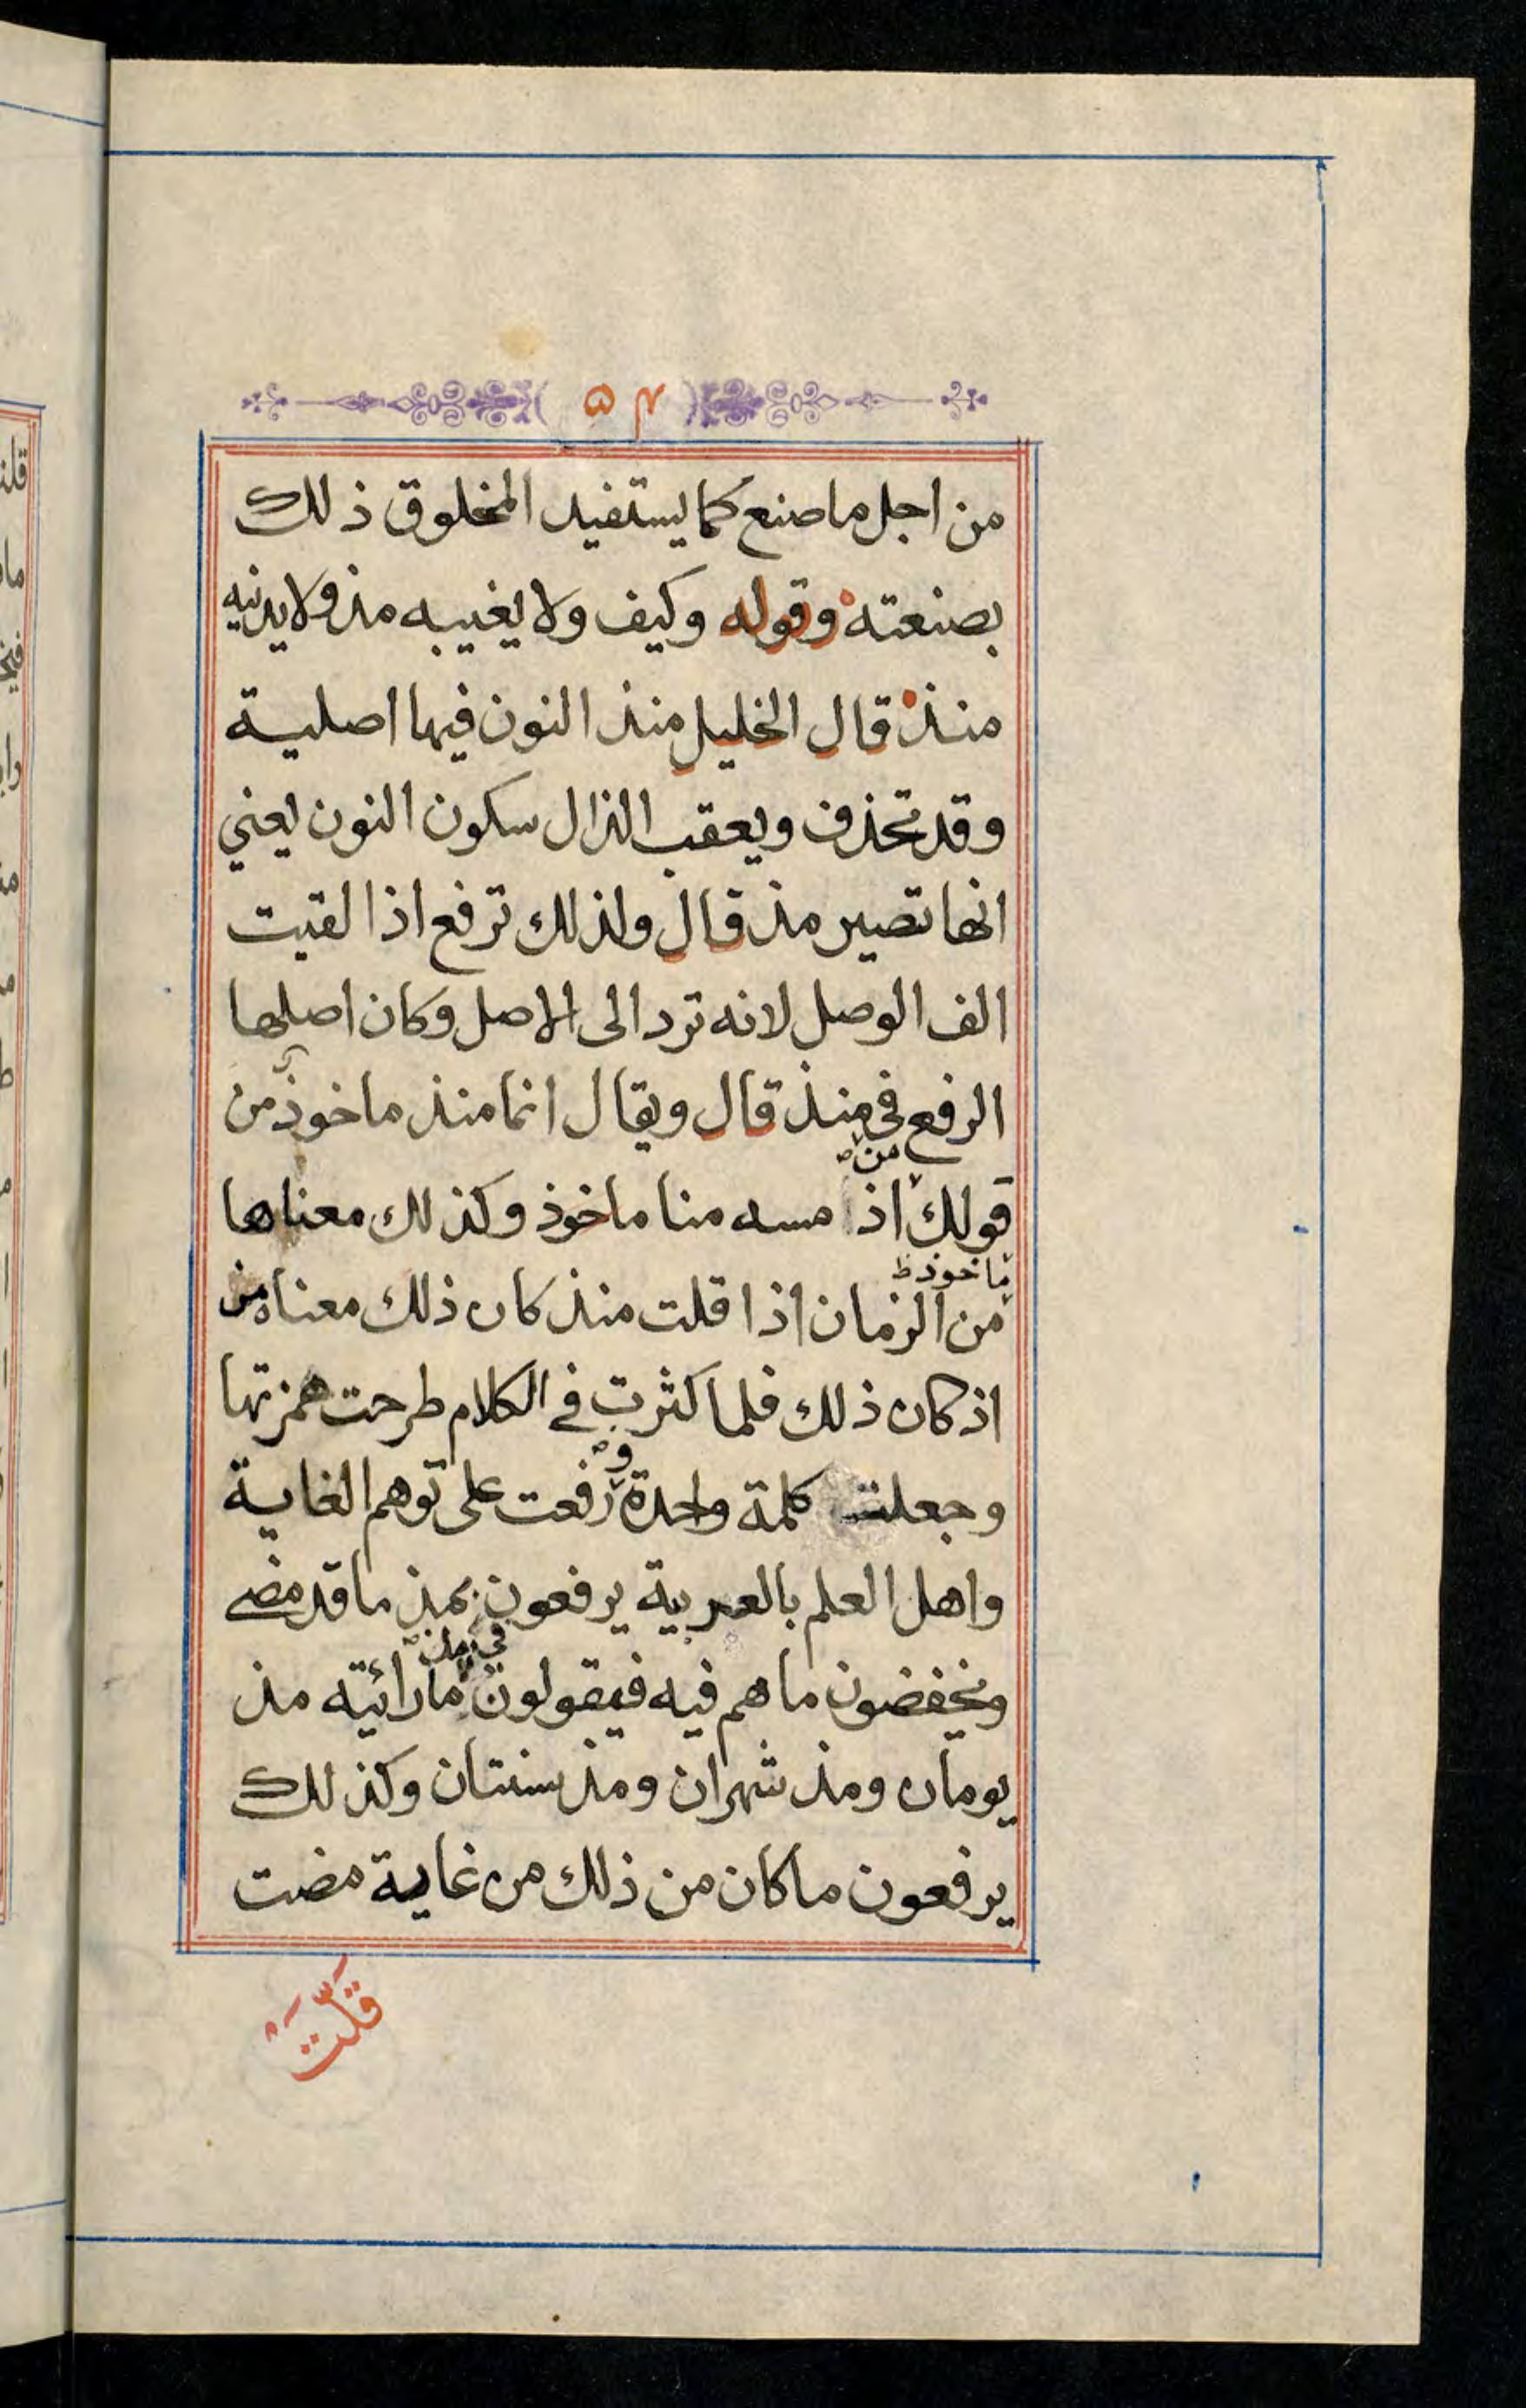 ٥٤
من اجل ما صنع كما يستفيد المخلوق ذلك
بصنعته وقوله وكيف ولا يغيبه مذ ولا يدنيه
منذ قال الخليل منذ النون فيها اصلية
وقد تحذف ويعقب الذال سكون النون يعني
انها تصير مذ قال ولذلك ترفع اذا لقيت
الف الوصل لانه ترد الى الاصل وكان اصلها
الرفع في منذ قال ويقال انما منذ ماخوذ من
من
قولك اذ مسه منا ماخوذ وكذلك معناها
ماخوذ ظ
من الزمان اذا قلت منذ كان ذلك معناه من
اذ كان ذلك فلما كثرت في الكلام طرحت همزتها
و
وجعلت كلمة واحدة رفعت على توهم الغاية
واهل العلم بالعربية يرفعون بمذ ما قد مضى
في مذ
ويخفضون ما هم فيه فيقولون ما رائيته مذ
يومان ومذ شهران ومذ سنتان وكذلك
يرفعون ما كان من ذلك من غاية مضت
قلت